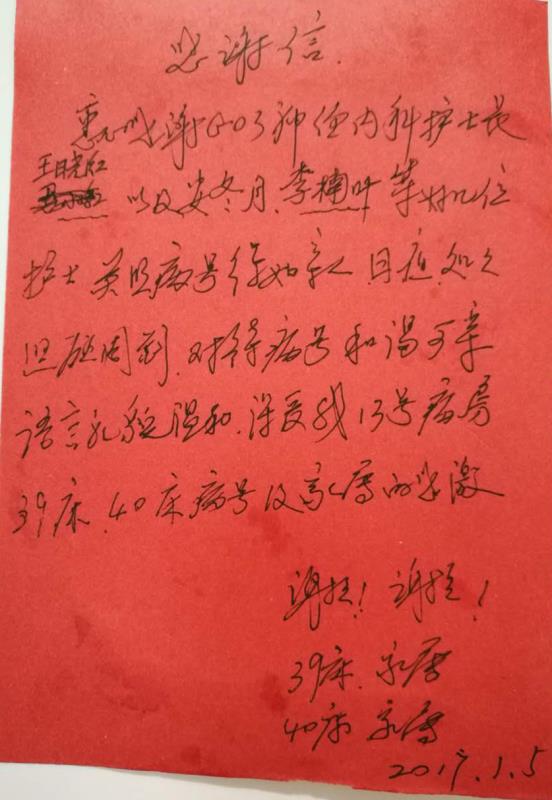 感谢信.
衷心感谢G03神经内科护士长
王晓红
以及安冬月、李楠叶等好几位
护士 关照病号待如亲人,
照顾周到,对待病号和蔼可亲
语言礼貌温和,深受我13号病房
39床、40床病号及家属的感激
谢谢!谢谢!
39床、家属
40床 家属
2017.1.5